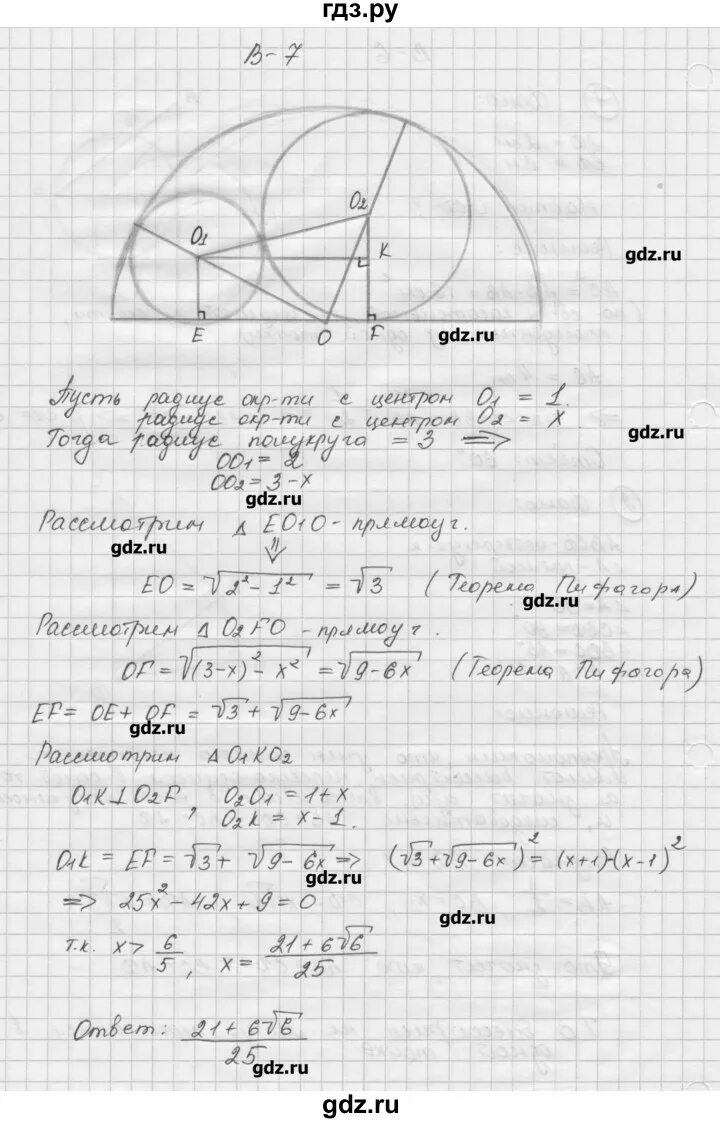 гдз.ру
В-7
O₂
O₁
K
gdz.ru
E
O
F
gdz.ru
Пусть радиус окр-ти с центром O₁ = 1.
радиус окр-ти с центром O₂ = x
gdz.ru
Тогда радиус полукруга = 3 ⟹
OO₁ = 2
OO₂ = 3-x
gdz.ru
Рассмотрим △ EO₁O - прямоуг.
gdz.ru
⇓
EO = √(2² - 1²) = √3 (Теорема Пифагора)
gdz.ru
Рассмотрим △ O₂FO - прямоуг.
OF = √((3-x)² - x²) = √(9-6x) (Теорема Пифагора)
EF = OE + OF = √3 + √(9-6x)
gdz.ru
Рассмотрим △ O₁KO₂
O₁K ⊥ O₂F, O₂O₁ = 1+x
O₂K = x-1.
O₁K = EF = √3 + √(9-6x) ⟹ (√3 + √(9-6x))² = (x+1)-(x-1)²
gdz.ru
⟹ 25x² - 42x + 9 = 0
gdz.ru
т.к. x > 6/5, x = (21+6√6)/25
Ответ: (21+6√6)/25
gdz.ru
gdz.ru